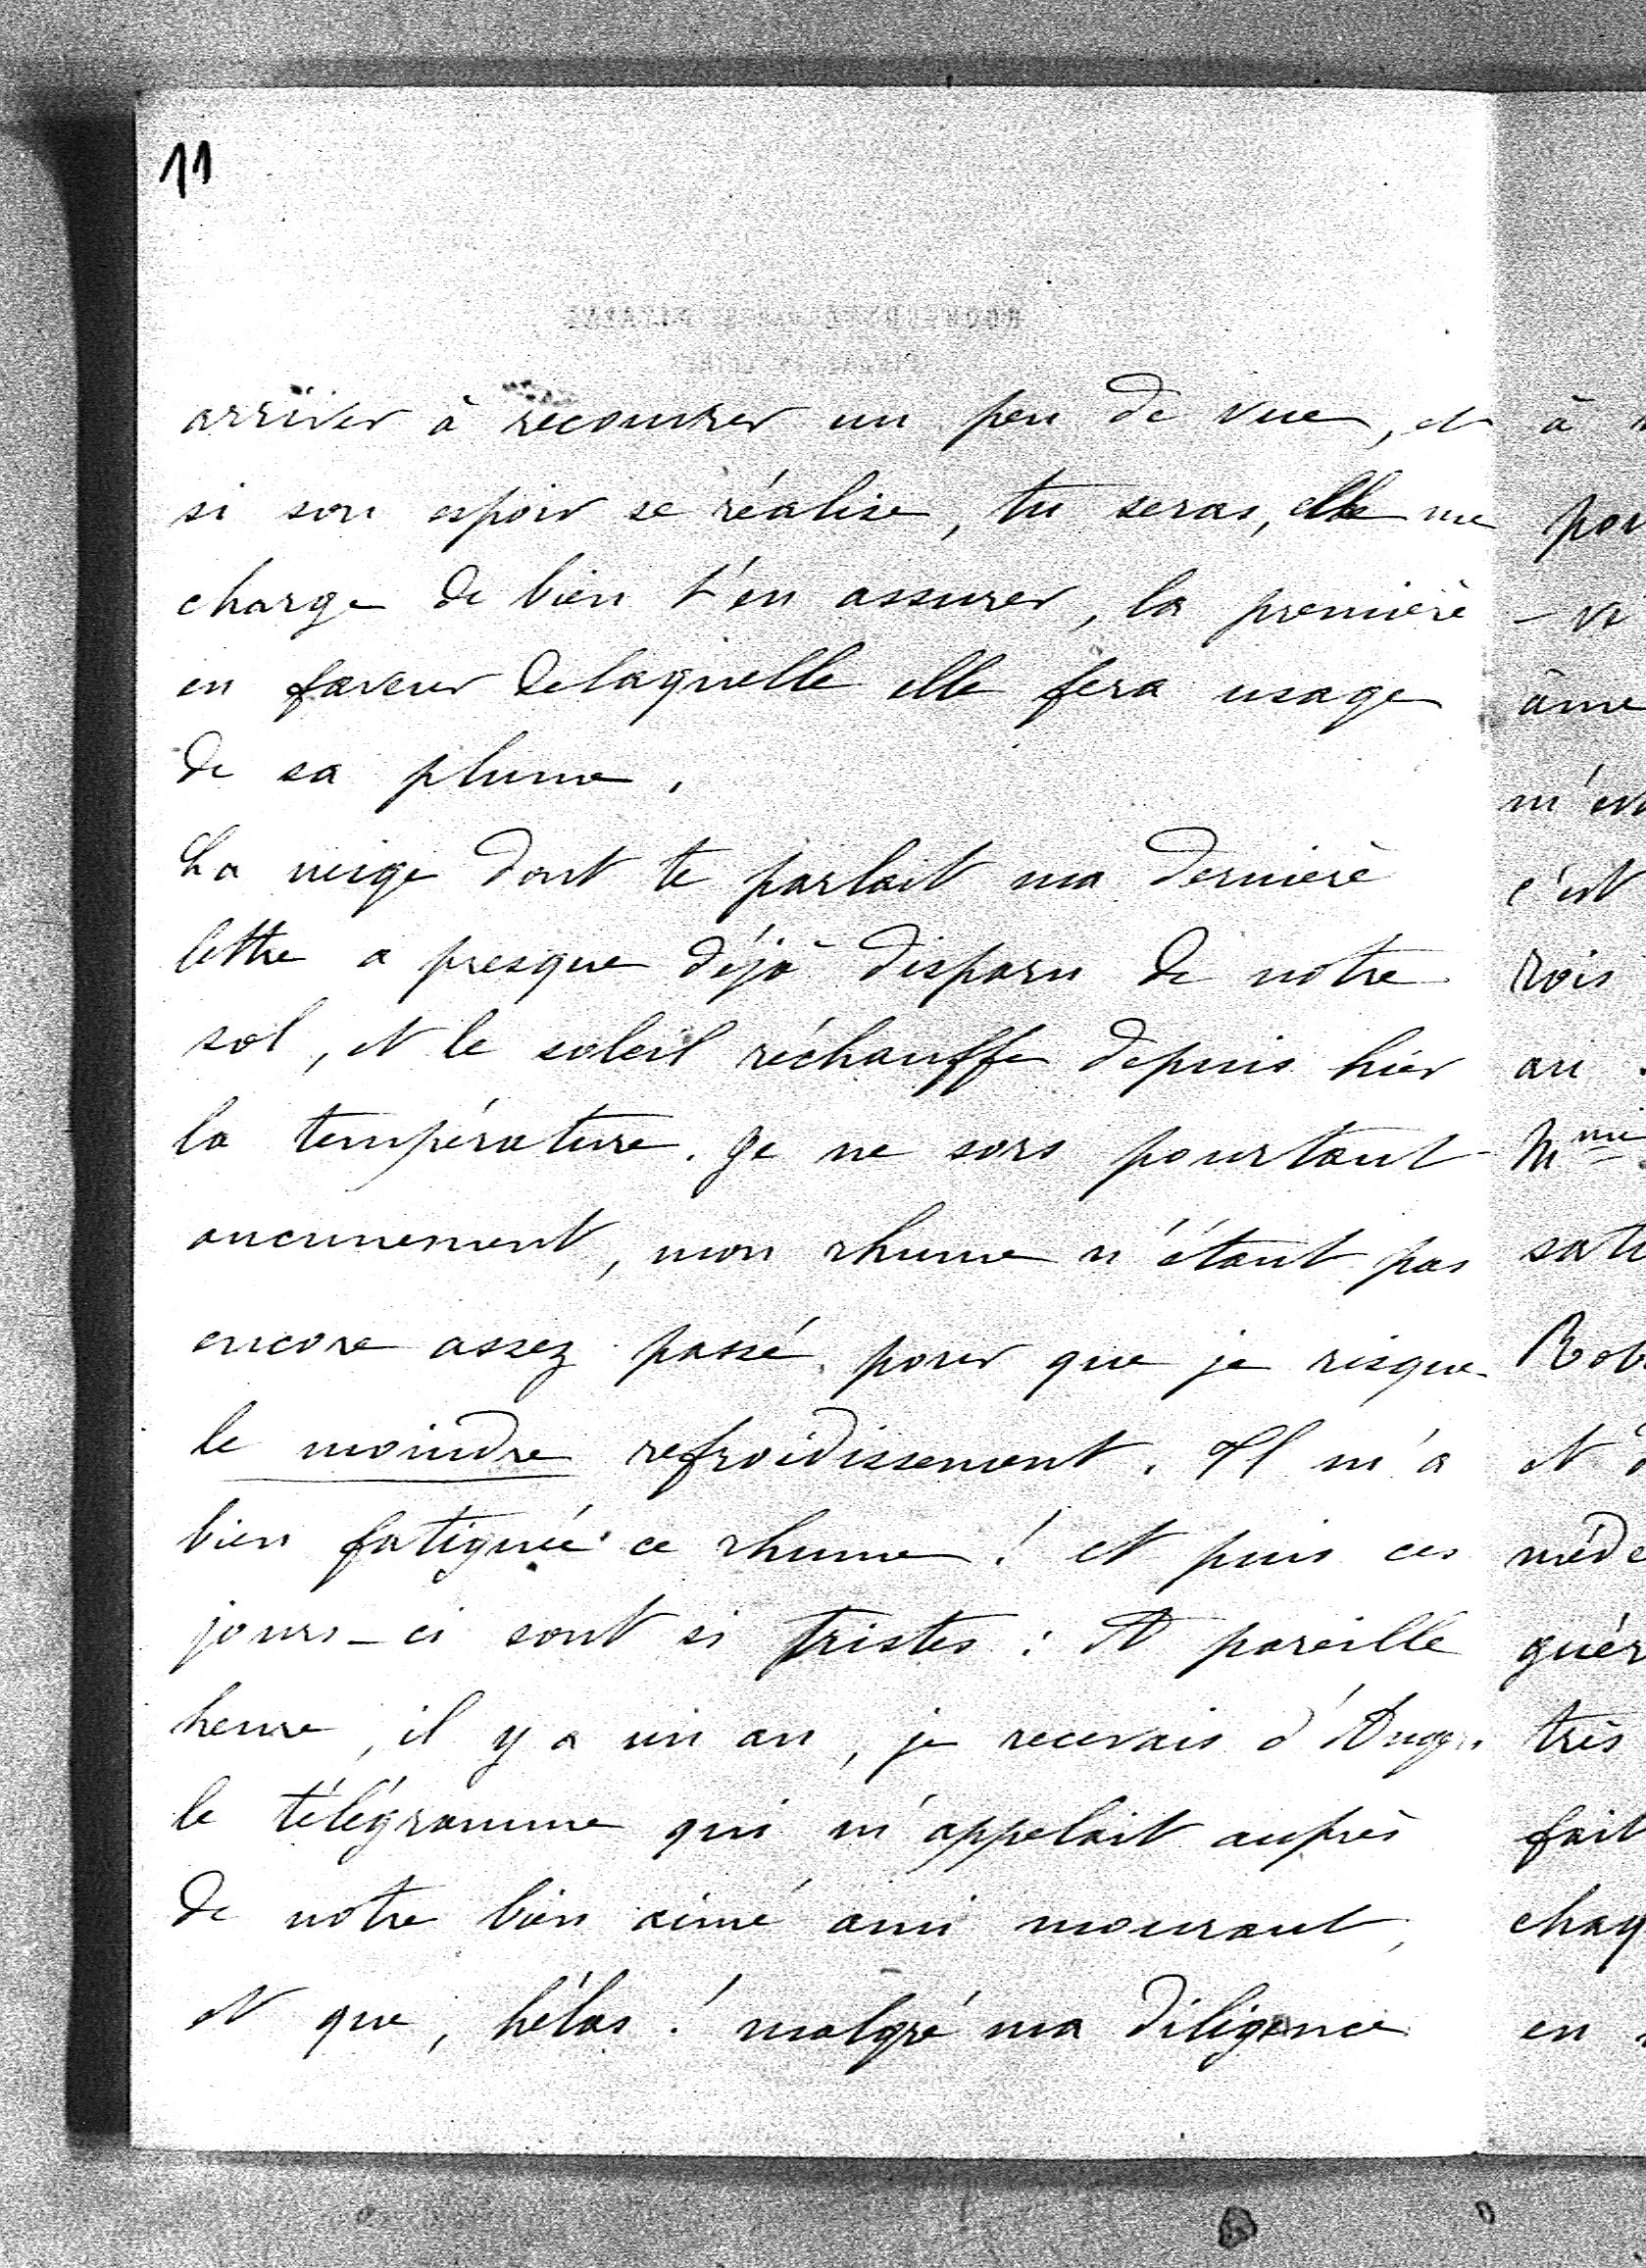 11
arriver à recouvrer un peu de vue, et
si son espoir se réalise, tu seras, elle me
charge de bien t'en assurer, la première
en faveur de laquelle elle fera usage
de sa plume.
La neige dont te parlait ma dernière
lettre a presque déjà disparu de notre
sol, et le soleil réchauffe depuis hier
la température. Je ne sors pourtant
aucunement, mon rhume n'étant pas
encore assez passé pour que je risque
le moindre refroidissement. Il m'a
bien fatiguée ce rhume ! et puis ces
jours-ci sont si tristes : A pareille
heure, il y a un an, je recevais d'Angers
le télégramme qui m'appelait auprès
de notre bien aimé ami mourant,
et que, hélas ! malgré ma diligence
à
por
âme
c'est
rois
an.
Mme
Rob
et
méde
guér
très
fait
chaq
en